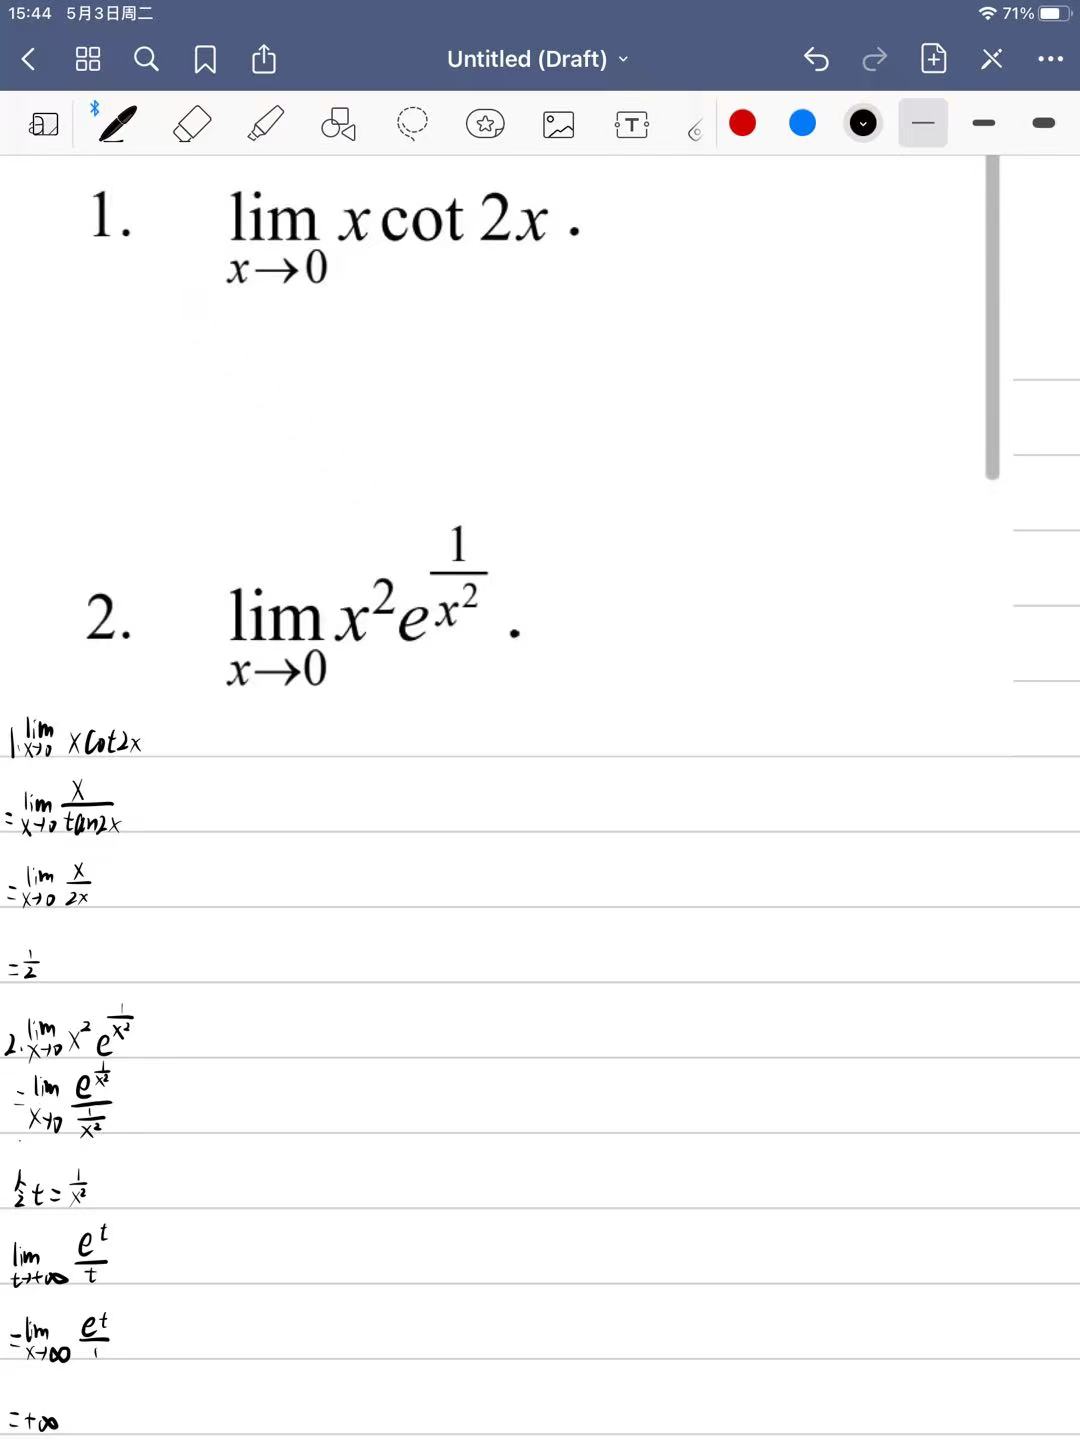 15:44 5月3日周二
71%
Untitled (Draft)
T
1. lim x→0 x cot 2x .
2. lim x→0 x² e^(1/x²) .
1. lim x→0 x cot2x
= lim x→0 x/tan2x
= lim x→0 x/2x
= 1/2
2. lim x→0 x² e^(1/x²)
= lim x→0 e^(1/x²)/(1/x²)
令 t = 1/x²
lim t→+∞ e^t/t
= lim x→∞ e^t/1
= +∞